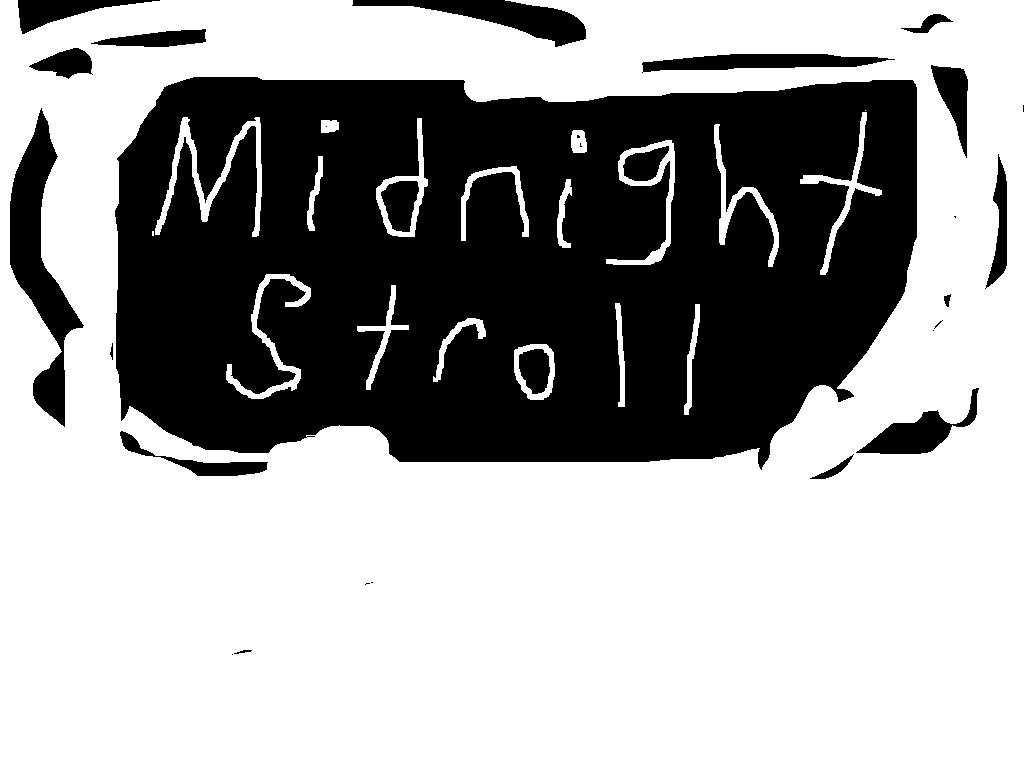 Midnight
Stroll